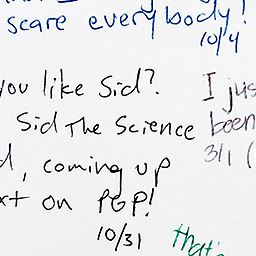 scare everybody!
10/4
you like Sid?
Sid The Science
, coming up
on PGP!
10/31
I jus
been
3/1 (
that's